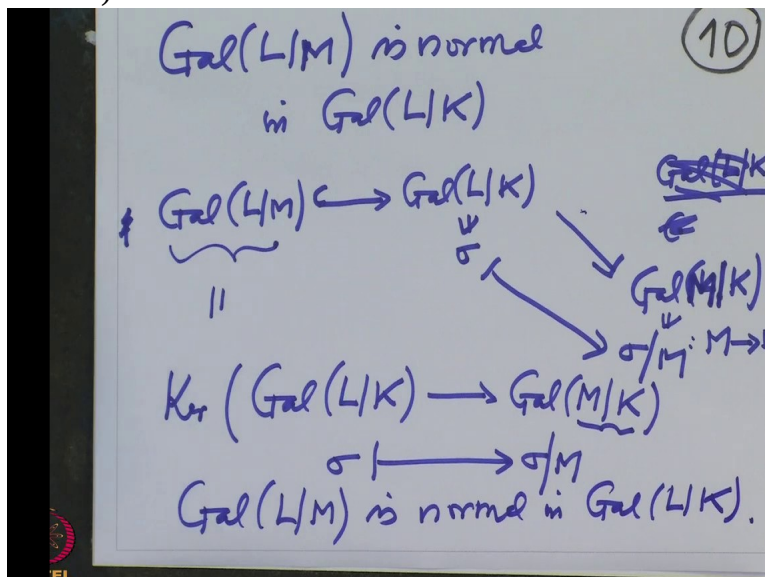 Gal(L|M) is normal
10
in Gal(L|K)
Gal(L|M) ↪ Gal(L|K)
σ
Gal(M|K)
σ/M : M→
||
Ker ( Gal(L|K) ⟶ Gal(M|K)
σ ⟼ σ/M
Gal(L|M) is normal in Gal(L|K).